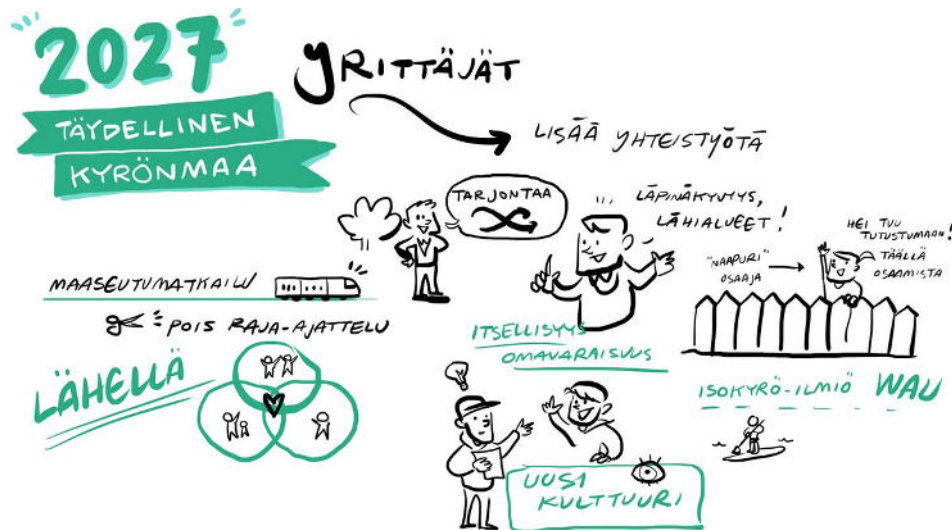 2027
TÄYDELLINEN
KYRÖNMAA
YRITTÄJÄT
LISÄÄ YHTEISTYÖTÄ
TARJONTAA
LÄPINÄKYVYYS,
LÄHIALUEET!
HEI TUU
TUTUSTUMAAN!
TÄÄLLÄ
OSAAMISTA
"NAAPURI"
OSAAJA
MAASEUTUMATKAILU
POIS RAJA-AJATTELU
LÄHELLÄ
ITSELLISYYS
OMAVARAISUUS
ISOKYRÖ-ILMIÖ WAU
UUSI
KULTTUURI